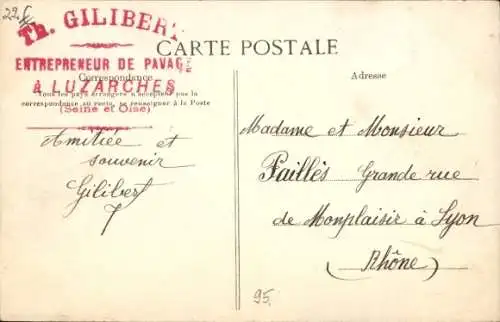 22.
Th. GILIBERT
ENTREPRENEUR DE PAVAGE
à LUZARCHES
(Seine et Oise)
CARTE POSTALE
Correspondance
Tous les pays étrangers n'acceptent pas la
correspondance au recto, se renseigner à la Poste
Amitiée et
souvenir
Gilibert
Adresse
Madame et Monsieur
Faillès Grande rue
de Monplaisir à Lyon
(Rhône)
95.